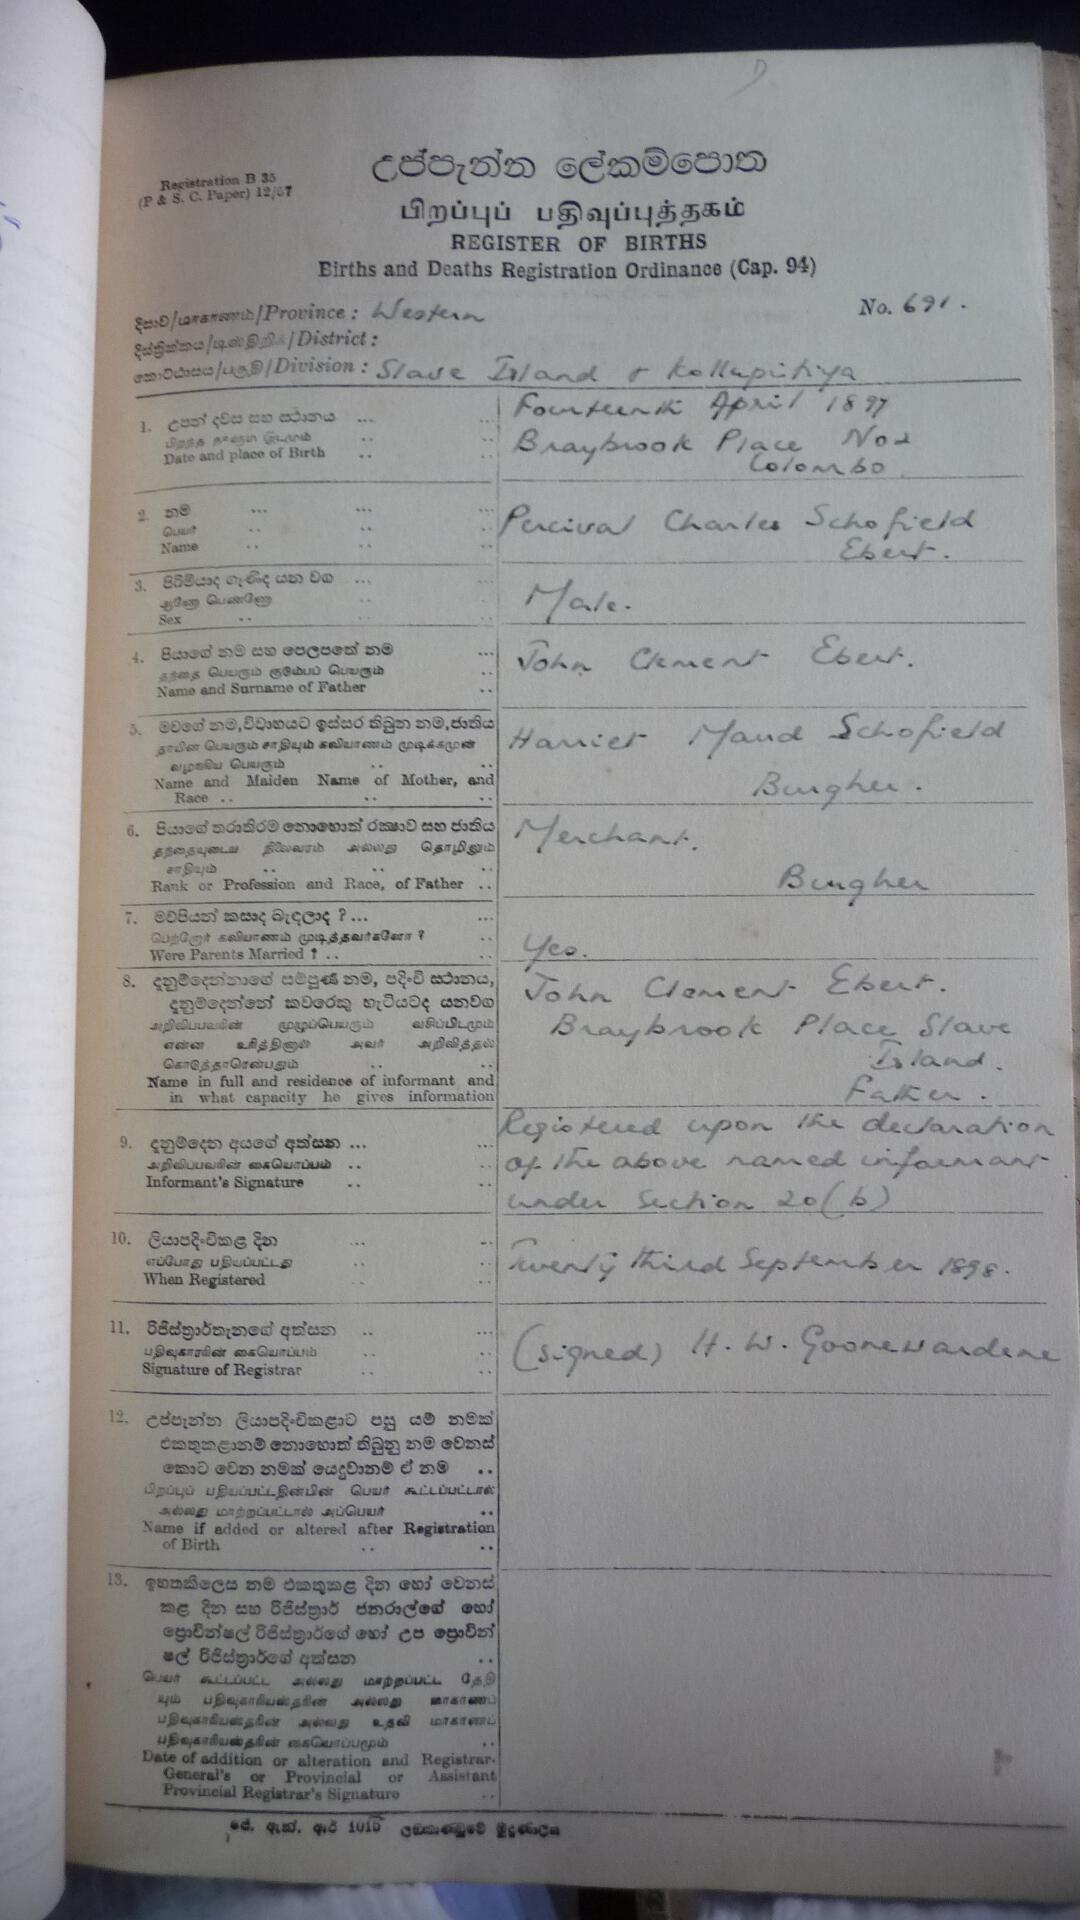 Registration B 35
(P & S. C. Paper) 12/57
උප්පැන්න ලේකම්පොත
பிறப்புப் பதிவுப்புத்தகம்
REGISTER OF BIRTHS
Births and Deaths Registration Ordinance (Cap. 94)
දිසාව/மாகாணம்/Province : Western
No. 691.
දිස්ත්‍රික්කය/டிஸ்திறிக்/District :
කොට්ඨාසය/பகுதி/Division : Slave Island & Kollupitiya
1. උපන් දවස සහ ස්ථානය ... ...
பிறந்த நாளும் இடமும் .. ..
Date and place of Birth .. ..
Fourteenth April 1897
Braybrook Place No 2
Colombo.
2. නම ... ... ...
பெயர் .. .. ..
Name .. .. ..
Percival Charles Schofield
Ebert.
3. පිරිමියාද ගැණිද යන වග ... ...
ஆணோ பெண்ணோ .. ..
Sex .. .. ..
Male.
4. පියාගේ නම සහ පෙලපතේ නම ...
தந்தை பெயரும் குடும்பப் பெயரும் ..
Name and Surname of Father ..
John Clement Ebert.
5. මවගේ නම, විවාහයට ඉස්සර තිබුන නම, ජාතිය
தாயின் பெயரும் சாதியும் கலியாணம் முடிக்கமுன்
வழங்கிய பெயரும் .. ..
Name and Maiden Name of Mother, and
Race .. .. ..
Harriet Maud Schofield
Burgher.
6. පියාගේ තරාතිරම නොහොත් රක්ෂාව සහ ජාතිය
தந்தையுடைய நிலைவரம் அல்லது தொழிலும்
சாதியும் .. .. ..
Rank or Profession and Race, of Father ..
Merchant.
Burgher
7. මව්පියන් කසාද බැඳලාද ? ... ...
பெற்றோர் கலியாணம் முடித்தவர்களோ ? ..
Were Parents Married ? .. ..
Yes.
8. දැනුම්දෙන්නාගේ සම්පූර්ණ නම, පදිංචි ස්ථානය,
දැනුම්දෙන්නේ කවරෙකු හැටියටද යනවග
அறிவிப்பவரின் முழுப்பெயரும் வசிப்பிடமும்
என்ன உரித்தினால் அவர் அறிவித்தல்
கொடுத்தாரென்பதும் .. ..
Name in full and residence of informant and
in what capacity he gives information
John Clement Ebert.
Braybrook Place Slave
Island.
Father.
9. දැනුම්දෙන අයගේ අත්සන ... ...
அறிவிப்பவரின் கையொப்பம் .. ..
Informant's Signature .. ..
Registered upon the declaration
of the above named informant
under Section 20 (b)
10. ලියාපදිංචිකළ දින ... ...
எப்போது பதியப்பட்டது .. ..
When Registered .. ..
Twenty third September 1898.
11. රිජිස්ත්‍රාර්තැනගේ අත්සන .. ...
பதிவுகாரரின் கையொப்பம் .. ..
Signature of Registrar .. ..
(signed) H. W. Goonewardene
12. උප්පැන්න ලියාපදිංචිකළාට පසු යම් නමක්
එකතුකළානම් නොහොත් තිබුනු නම වෙනස්
කොට වෙන නමක් යෙදුවානම් ඒ නම ..
பிறப்புப் பதியப்பட்டதின்பின் பெயர் கூட்டப்பட்டால்
அல்லது மாற்றப்பட்டால் அப்பெயர் ..
Name if added or altered after Registration
of Birth .. ..
13. ඉහතකිලෙස නම එකතුකළ දින හෝ වෙනස්
කළ දින සහ රිජිස්ත්‍රාර් ජනරාල්ගේ හෝ
ප්‍රොවින්ෂල් රිජිස්ත්‍රාර්ගේ හෝ උප ප්‍රොවින්
ෂල් රිජිස්ත්‍රාර්ගේ අත්සන ..
பெயர் கூட்டப்பட்ட அல்லது மாற்றப்பட்ட தேதி
யும் பதிவுகாரியஸ்தரின் அல்லது மாகாணப்
பதிவுகாரியஸ்தரின் அல்லது உதவி மாகாணப்
பதிவுகாரியஸ்தரின் கையொப்பமும் ..
Date of addition or alteration and Registrar-
General's or Provincial or Assistant
Provincial Registrar's Signature ..
ලංකාණ්ඩුවේ මුද්‍රණාලය